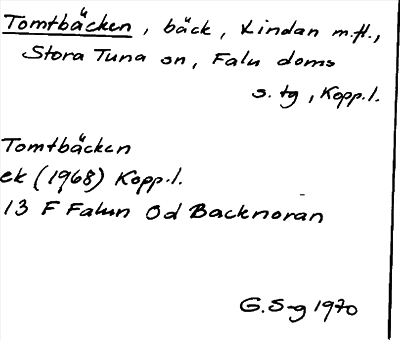 Tomtbäcken, bäck, Lindan m.fl.,
Stora Tuna sn, Falu doms
s. tg, Kopp.l.
Tomtbäcken
ek (1968) Kopp.l.
13 F Falun Od Backnoran
G.S-g 1970